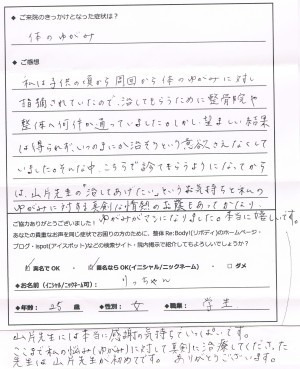 ● ご来院のきっかけとなった症状は?
体のゆがみ
● ご感想
私は子供の頃から周囲から体のゆがみに対し
指摘されていたので、治してもらうために整骨院や
整体へ何件か通っていました。しかし望ましい結果
は得られず、いつのまにか治そうという意欲さえなくして
いました。そんな中、こちらで診てもらうようになってから
は、山片先生の"治してあげたい"というお気持ちと私の
ゆがみに対する真剣な情熱のお蔭もあってかなり、
ゆがみがマシになりました。本当に嬉しいです。
ご協力ありがとうございました!
あなたの貴重なお声を同じ症状でお困りの方のために、整体 Re:Body!(リボディ)のホームページ・
ブログ・ispot(アイスポット)などの検索サイト・院内掲示で紹介してもよろしいでしょうか?
実名でOK ・ 匿名ならOK(イニシャル/ニックネーム) ・ □ ダメ
●お名前(イニシャル/ニックネーム可): りっちゃん
●年齢: 25 歳 ●性別: 女 ●職業: 学生
山片先生には本当に感謝の気持ちでいっぱいです。
ここまで私の悩み(ゆがみ)に対して真剣に治療してくださった
先生は山片先生が初めてです。ありがとうございます。